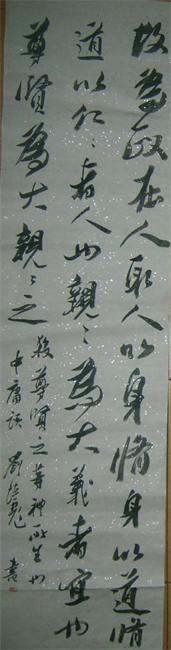 故為政在人取人以身脩身以道脩
道以仁〻者人也親〻為大義者宜也
尊賢為大親〻之
殺尊賢之等神所生也
中庸語 劉
書